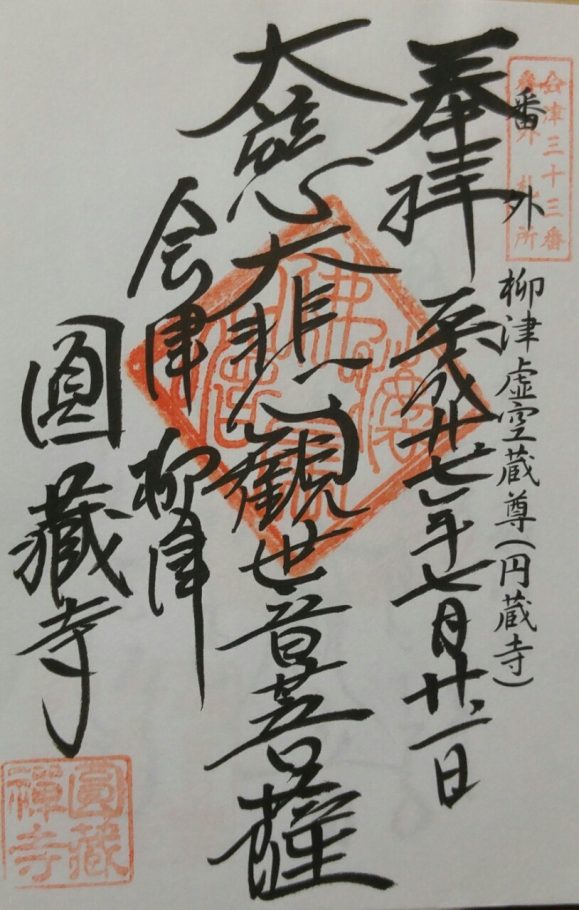 会津三十三番
番外札所
番外 柳津虚空蔵尊(円蔵寺)
奉拝 平成廿七年七月廿一日
大慈大悲観世音菩薩
会津柳津
圓蔵寺
圓蔵
禅寺